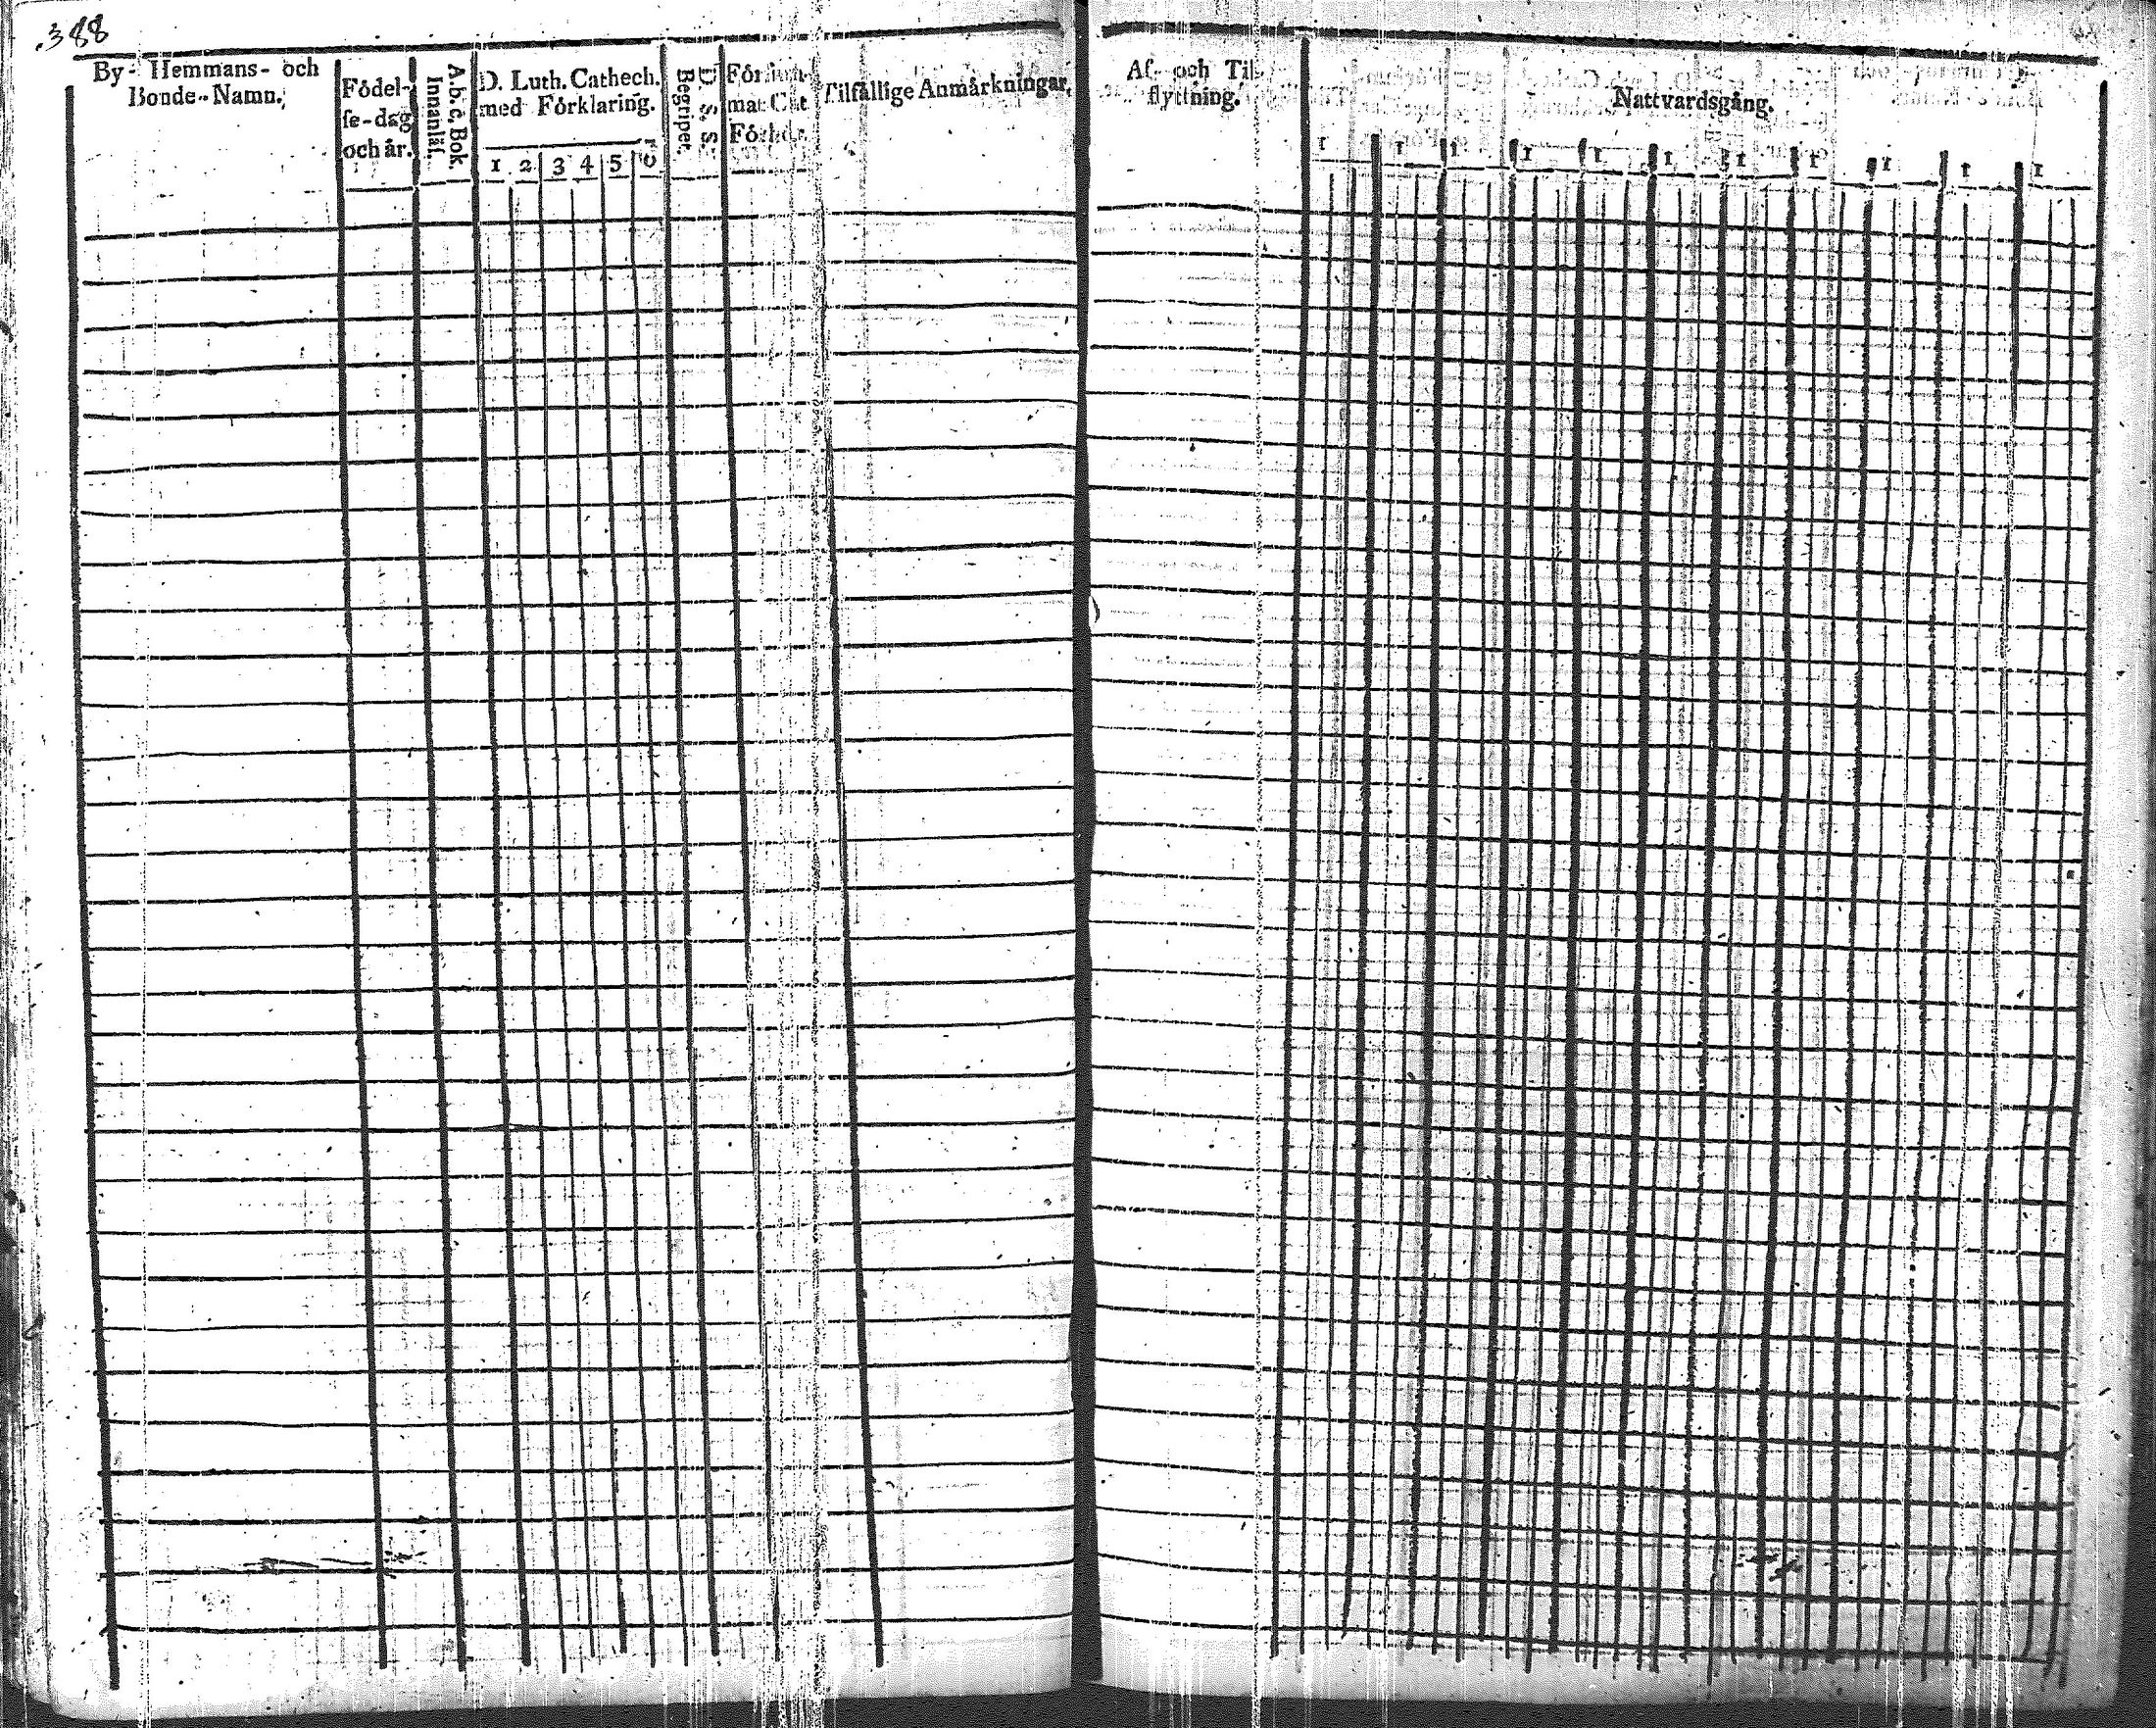 388
By- Hemmans- och
Bonde-Namn.
Födel-
se-dag
och år.
A. b. c. Bok.
Innanläs.
D. Luth. Cathech.
med Förklaring.
1 2 3 4 5
D. S. S.
Begriper.
Försum-
mat Cat.
Förhör.
Tilfällige Anmärkningar.
Af- och Til-
flyttning.
Nattvardsgång.
1 1 1 1 1 1 1 1 1 1 1